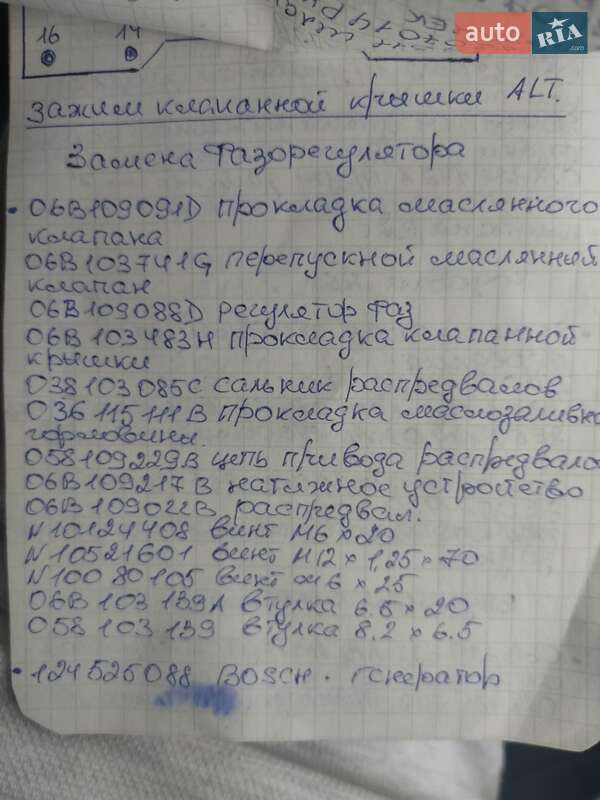 auto RIA .com
16 14
зажим клапанной крышки ALT.
Замена Фазорегулятора
• 06B109091D прокладка маслянного
клапана
06B103741G перепускной маслянный
клапан
06B109088D регулятор фаз
06B103483H прокладка клапанной
крышки
038103085C сальник распредвалов
036115111B прокладка маслозаливно
горловины.
058109229B цепь привода распредвало
06B109217B натяжное устройство
06B109022B распредвал.
N10124408 винт M6 x 20
N10521601 винт M12 x 1,25 x 70
N10080105 винт м6 x 25
06B 103 139A втулка 6.5 x 20
058 103 139 втулка 8.2 x 6.5
• 124525088 BOSCH. генератор